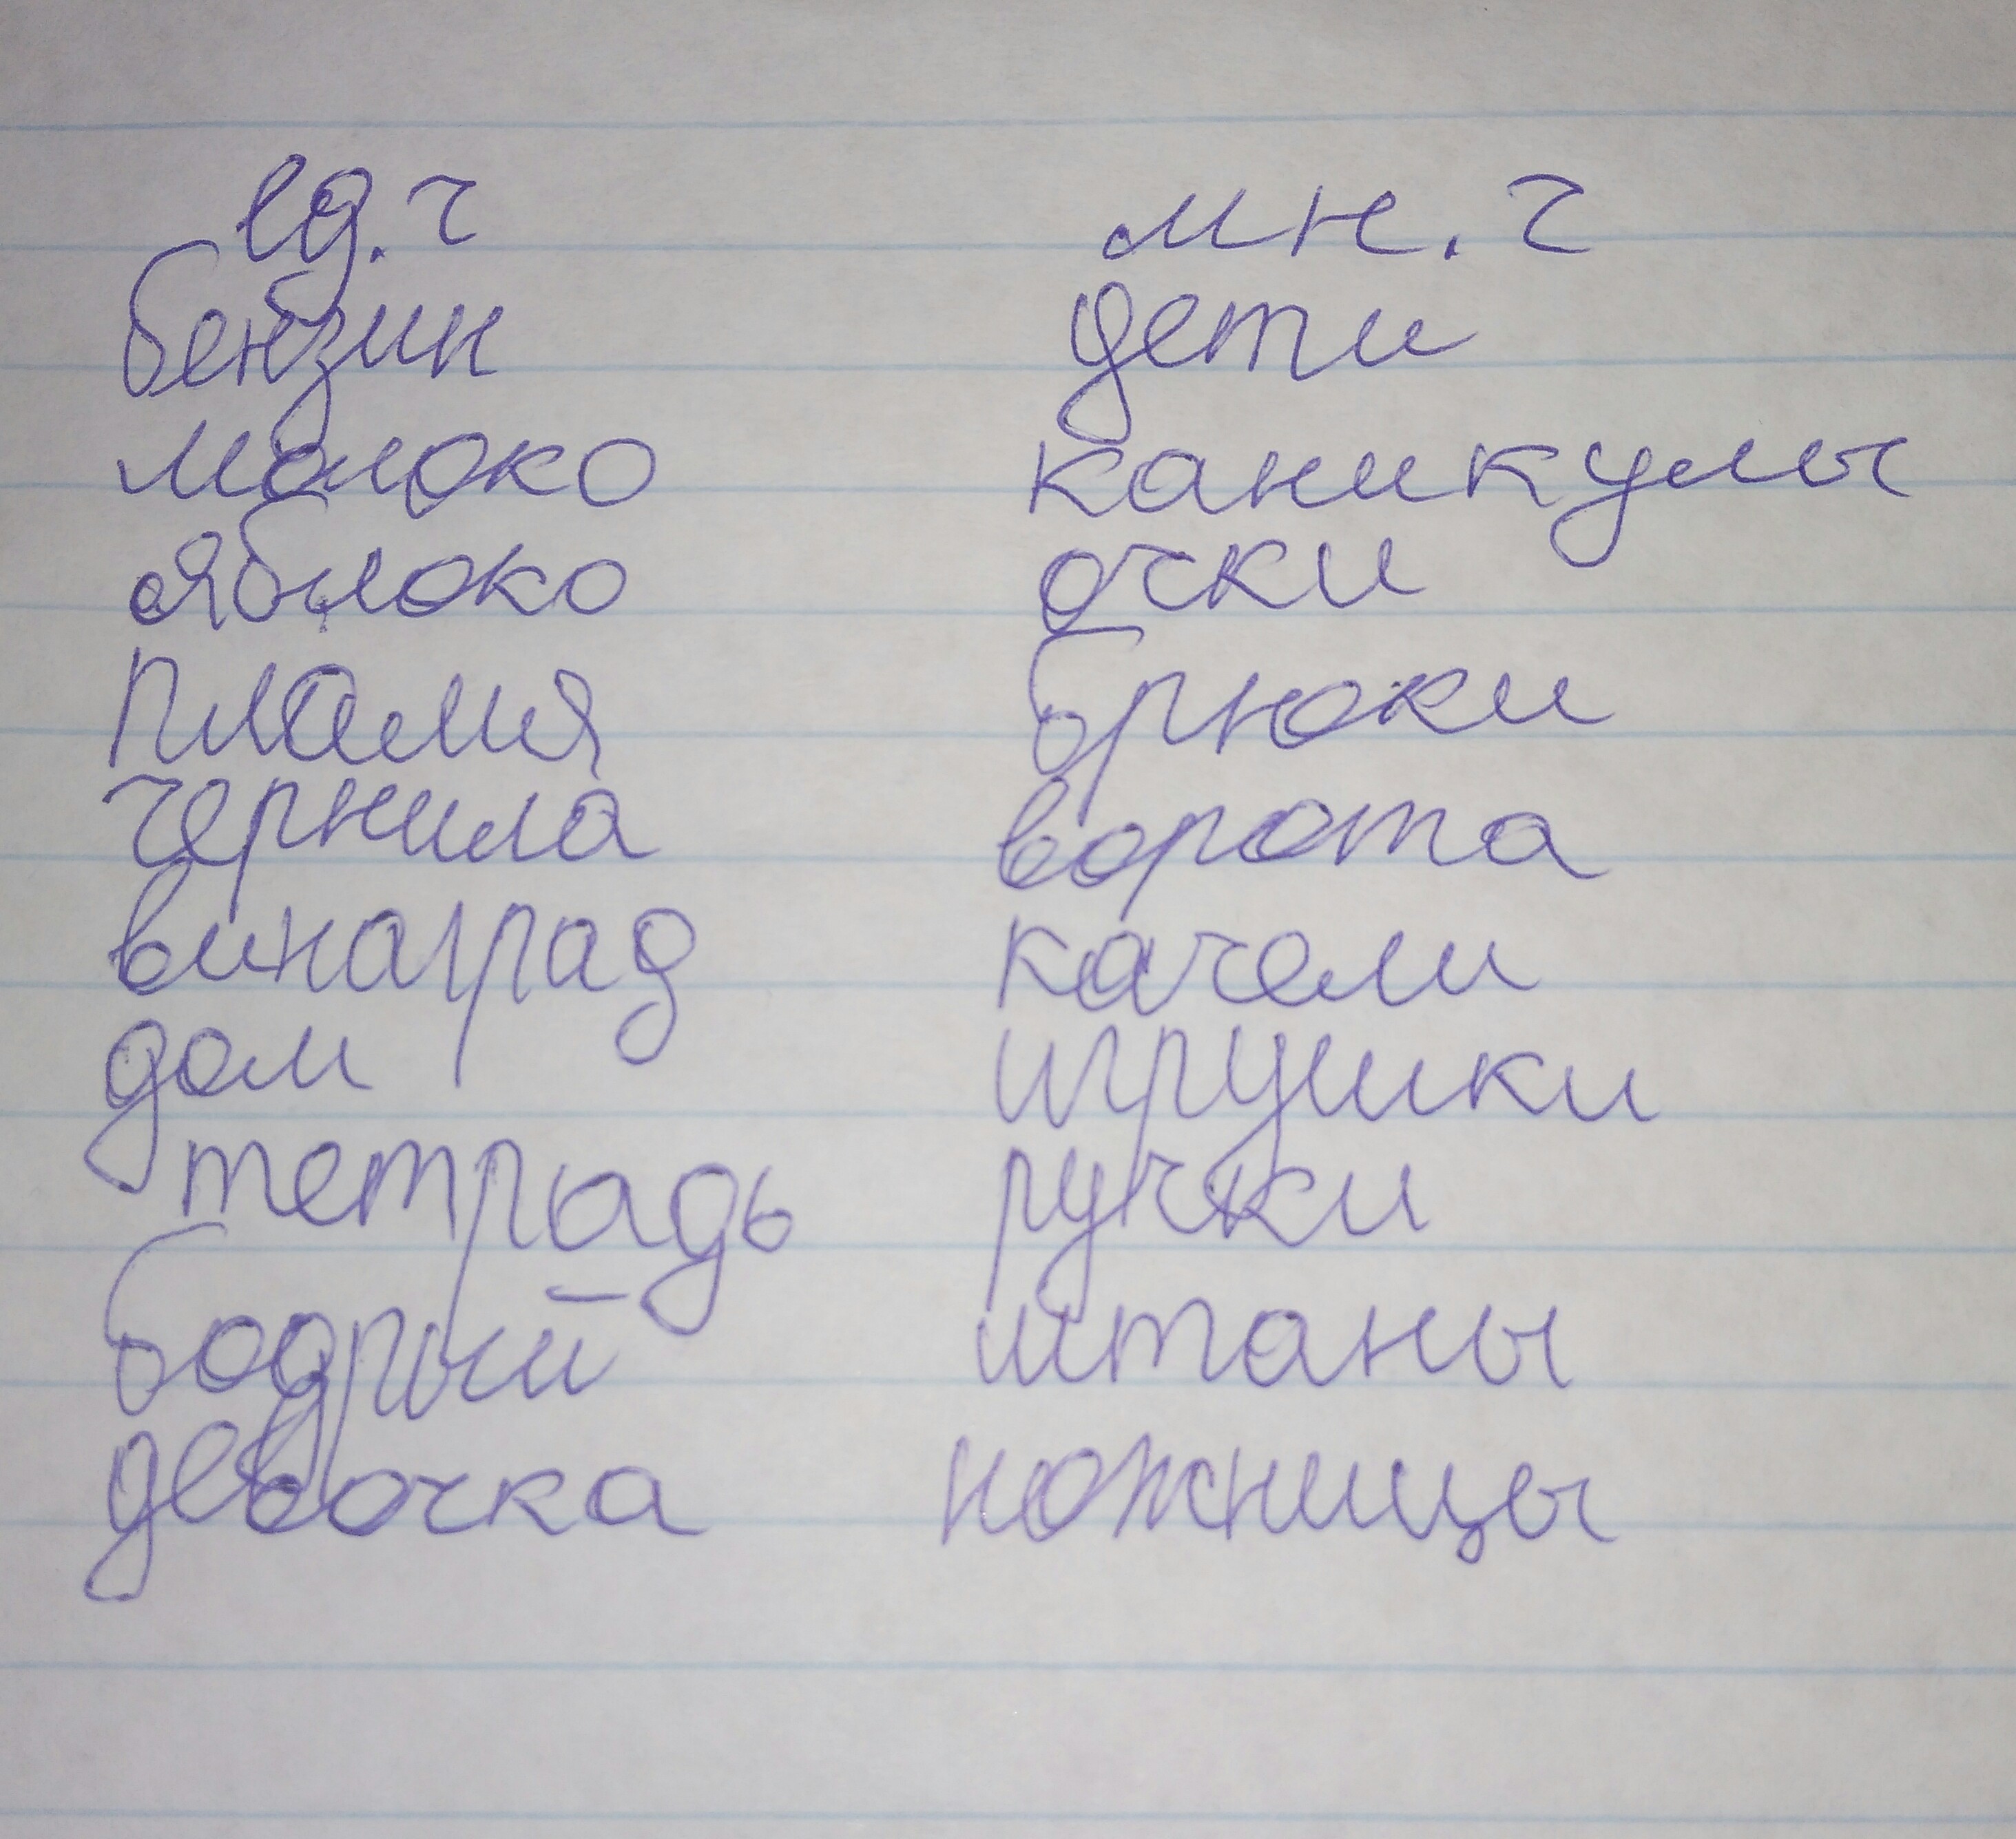 ед.ч мн.ч
бензин дети
молоко каникулы
яблоко очки
пламя брюки
чернила ворота
винаград качели
дом игрушки
тетрадь ручки
бодрый штаны
девочка ножницы